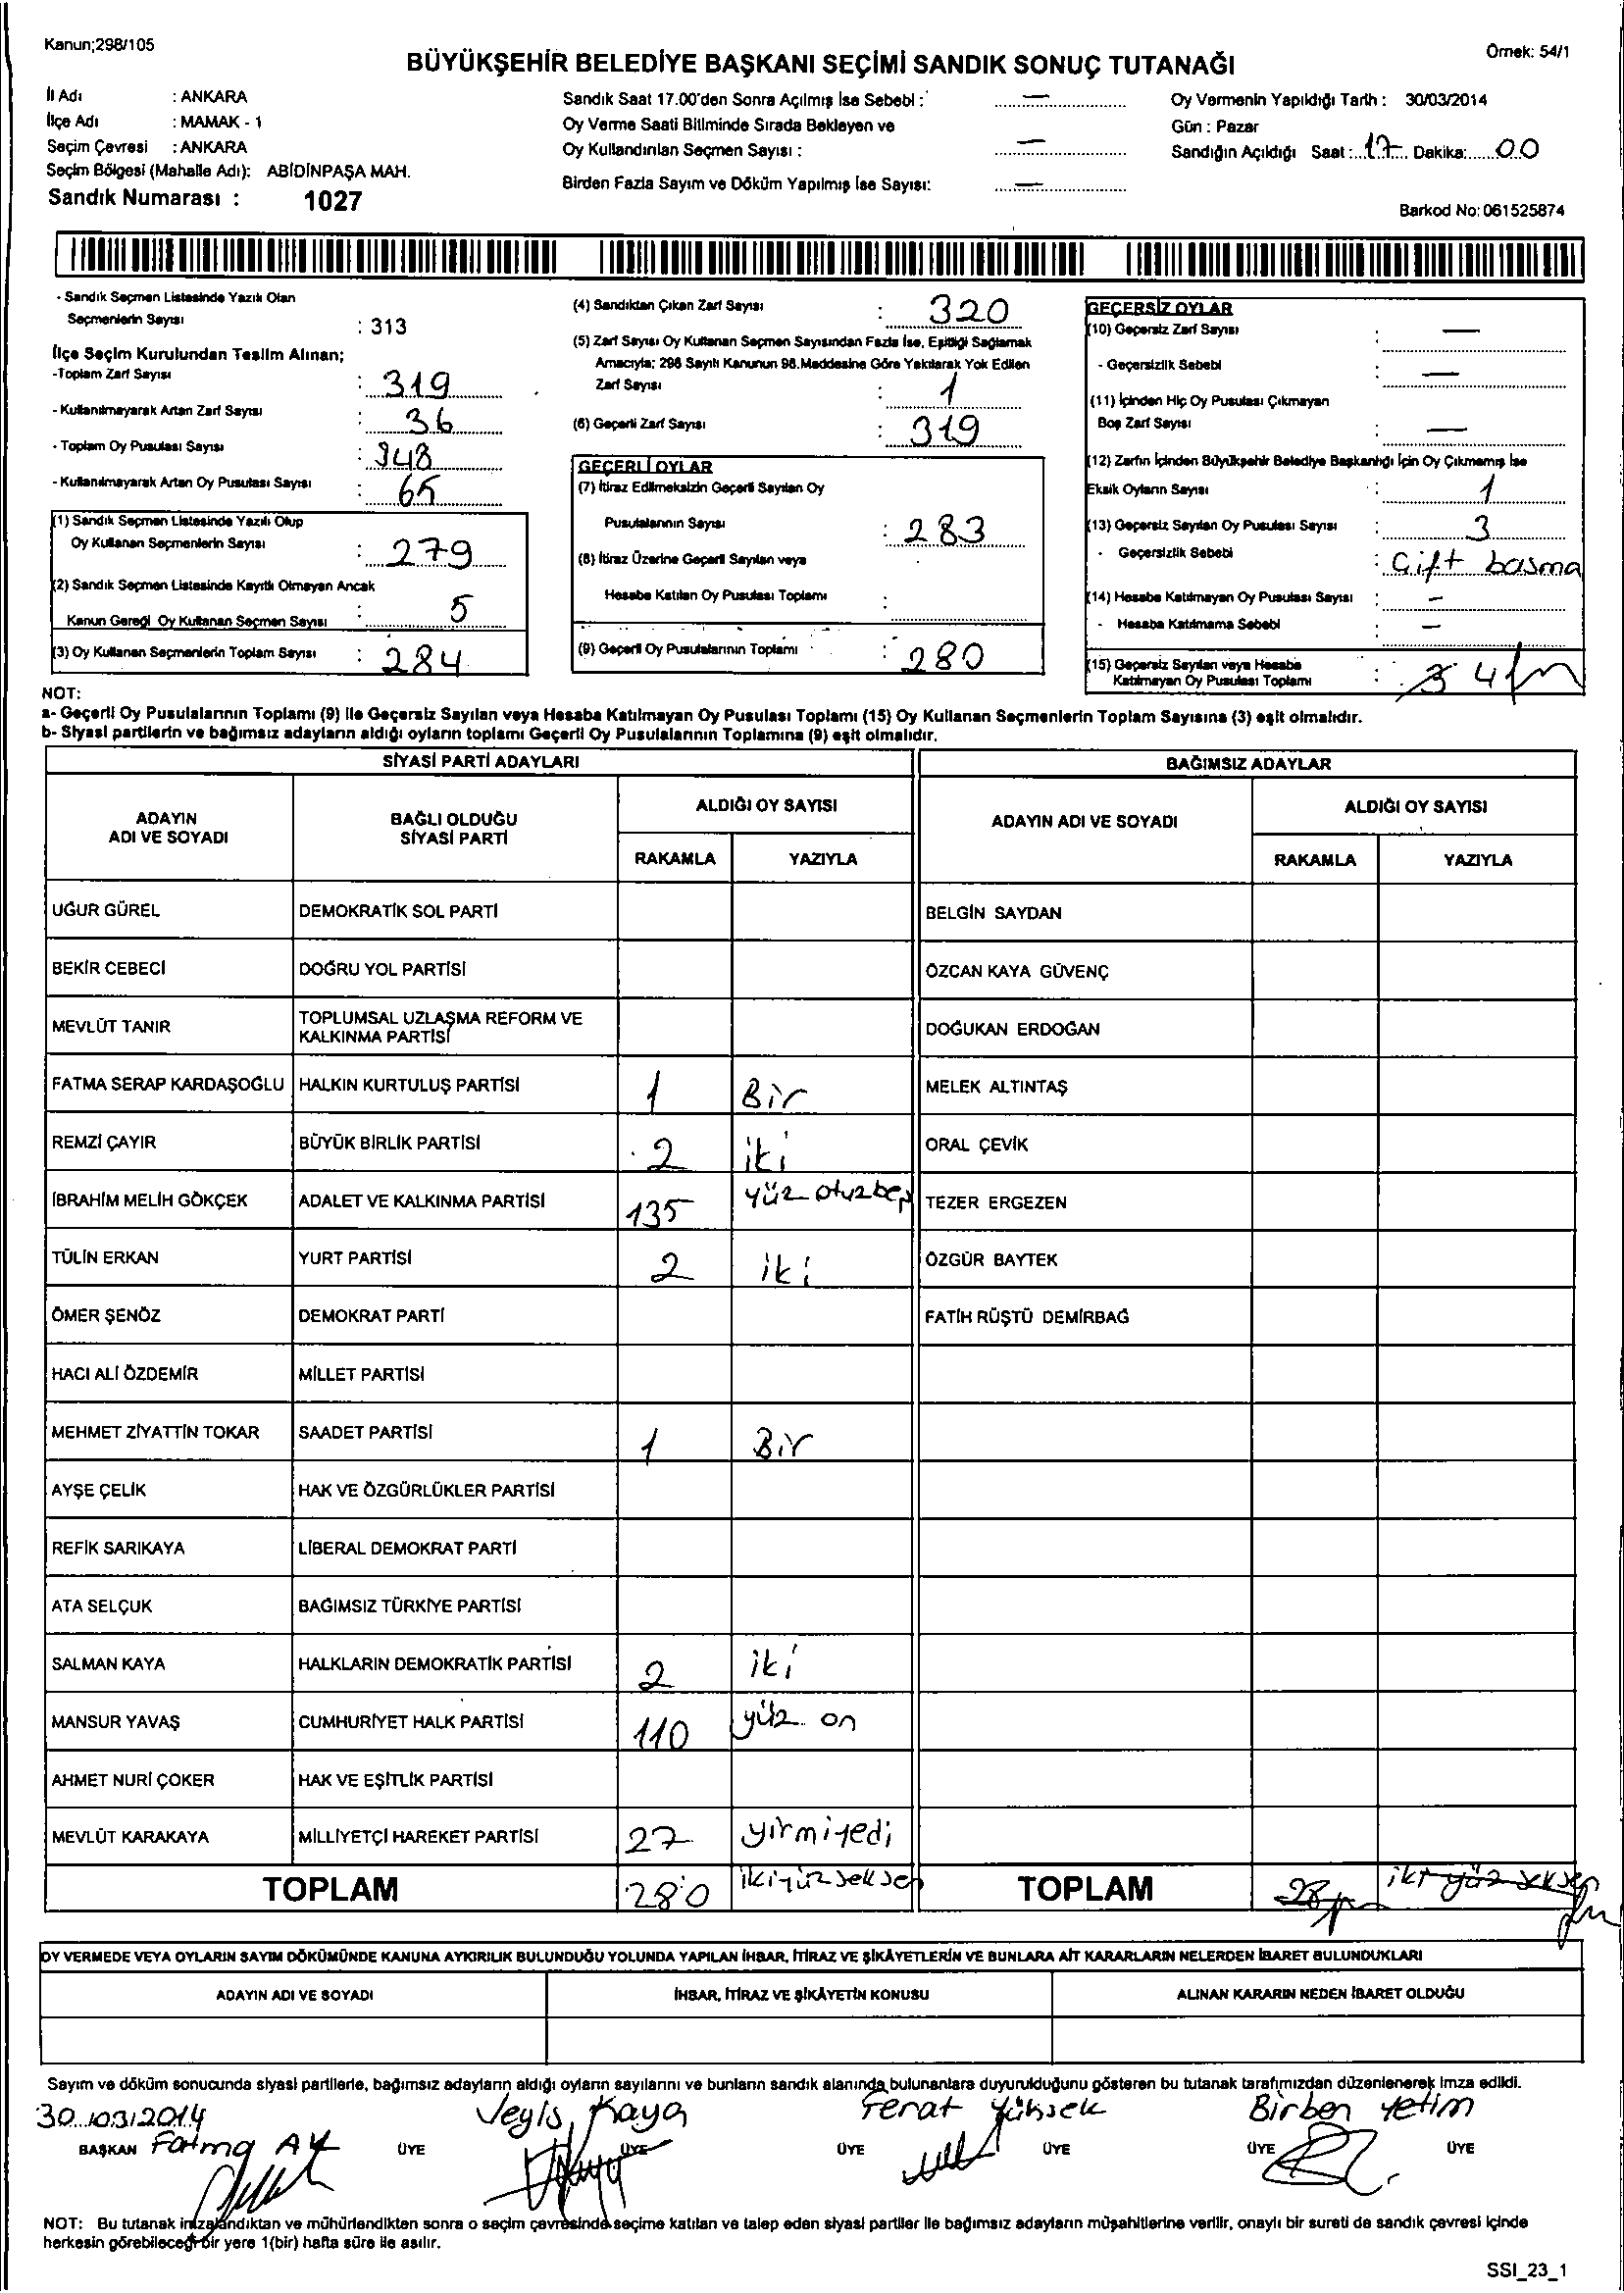 Kanun;298/105
Örnek: 54/1
BÜYÜKŞEHİR BELEDİYE BAŞKANI SEÇİMİ SANDIK SONUÇ TUTANAĞI
İl Adı : ANKARA
İlçe Adı : MAMAK - 1
Seçim Çevresi : ANKARA
Seçim Bölgesi (Mahalle Adı): ABİDİNPAŞA MAH.
Sandık Numarası : 1027
Sandık Saat 17.00'den Sonra Açılmış İse Sebebi : —
Oy Verme Saati Bitiminde Sırada Bekleyen ve
Oy Kullandırılan Seçmen Sayısı : —
Birden Fazla Sayım ve Döküm Yapılmış İse Sayısı: —
Oy Vermenin Yapıldığı Tarih : 30/03/2014
Gün : Pazar
Sandığın Açıldığı Saat: 17 Dakika: 00
Barkod No: 061525874
- Sandık Seçmen Listesinde Yazılı Olan
Seçmenlerin Sayısı : 313
İlçe Seçim Kurulundan Teslim Alınan;
-Toplam Zarf Sayısı : 319
- Kullanılmayarak Artan Zarf Sayısı : 36
- Toplam Oy Pusulası Sayısı : 348
- Kullanılmayarak Artan Oy Pusulası Sayısı : 65
(1) Sandık Seçmen Listesinde Yazılı Olup
Oy Kullanan Seçmenlerin Sayısı : 279
(2) Sandık Seçmen Listesinde Kayıtlı Olmayan Ancak
Kanun Gereği Oy Kullanan Seçmen Sayısı : 5
(3) Oy Kullanan Seçmenlerin Toplam Sayısı : 284
(4) Sandıktan Çıkan Zarf Sayısı : 320
(5) Zarf Sayısı Oy Kullanan Seçmen Sayısından Fazla İse, Eşitliği Sağlamak
Amacıyla; 298 Sayılı Kanunun 98.Maddesine Göre Yakılarak Yok Edilen
Zarf Sayısı : 1
(6) Geçerli Zarf Sayısı : 319
GEÇERLİ OYLAR
(7) İtiraz Edilmeksizin Geçerli Sayılan Oy
Pusulalarının Sayısı : 283
(8) İtiraz Üzerine Geçerli Sayılan veya
Hesaba Katılan Oy Pusulası Toplamı :
(9) Geçerli Oy Pusulalarının Toplamı : 280
GEÇERSİZ OYLAR
(10) Geçersiz Zarf Sayısı : —
- Geçersizlik Sebebi : —
(11) İçinden Hiç Oy Pusulası Çıkmayan
Boş Zarf Sayısı : —
(12) Zarfın İçinden Büyükşehir Belediye Başkanlığı İçin Oy Çıkmamış İse
Eksik Oyların Sayısı : 1
(13) Geçersiz Sayılan Oy Pusulası Sayısı : 3
- Geçersizlik Sebebi : Çift basma
(14) Hesaba Katılmayan Oy Pusulası Sayısı : –
- Hesaba Katılmama Sebebi : —
(15) Geçersiz Sayılan veya Hesaba
Katılmayan Oy Pusulası Toplamı : 3 4
NOT:
a- Geçerli Oy Pusulalarının Toplamı (9) ile Geçersiz Sayılan veya Hesaba Katılmayan Oy Pusulası Toplamı (15) Oy Kullanan Seçmenlerin Toplam Sayısına (3) eşit olmalıdır.
b- Siyasi partilerin ve bağımsız adayların aldığı oyların toplamı Geçerli Oy Pusulalarının Toplamına (9) eşit olmalıdır.
SİYASİ PARTİ ADAYLARI
BAĞIMSIZ ADAYLAR
ADAYIN ADI VE SOYADI
BAĞLI OLDUĞU SİYASİ PARTİ
ALDIĞI OY SAYISI
RAKAMLA YAZIYLA
ADAYIN ADI VE SOYADI
ALDIĞI OY SAYISI
RAKAMLA YAZIYLA
UĞUR GÜREL DEMOKRATİK SOL PARTİ BELGİN SAYDAN
BEKİR CEBECİ DOĞRU YOL PARTİSİ ÖZCAN KAYA GÜVENÇ
MEVLÜT TANIR TOPLUMSAL UZLAŞMA REFORM VE KALKINMA PARTİSİ DOĞUKAN ERDOĞAN
FATMA SERAP KARDAŞOĞLU HALKIN KURTULUŞ PARTİSİ 1 Bir MELEK ALTINTAŞ
REMZİ ÇAYIR BÜYÜK BİRLİK PARTİSİ 2 iki ORAL ÇEVİK
İBRAHİM MELİH GÖKÇEK ADALET VE KALKINMA PARTİSİ 135 yüz otuzbeş TEZER ERGEZEN
TÜLİN ERKAN YURT PARTİSİ 2 iki ÖZGÜR BAYTEK
ÖMER ŞENÖZ DEMOKRAT PARTİ FATİH RÜŞTÜ DEMİRBAĞ
HACI ALİ ÖZDEMİR MİLLET PARTİSİ
MEHMET ZİYATTİN TOKAR SAADET PARTİSİ 1 Bir
AYŞE ÇELİK HAK VE ÖZGÜRLÜKLER PARTİSİ
REFİK SARIKAYA LİBERAL DEMOKRAT PARTİ
ATA SELÇUK BAĞIMSIZ TÜRKİYE PARTİSİ
SALMAN KAYA HALKLARIN DEMOKRATİK PARTİSİ 2 iki
MANSUR YAVAŞ CUMHURİYET HALK PARTİSİ 110 yüz on
AHMET NURİ ÇOKER HAK VE EŞİTLİK PARTİSİ
MEVLÜT KARAKAYA MİLLİYETÇİ HAREKET PARTİSİ 27 yirmiyedi
TOPLAM 280 ikiyüzseksen TOPLAM iki yüz seksen
OY VERMEDE VEYA OYLARIN SAYIM DÖKÜMÜNDE KANUNA AYKIRILIK BULUNDUĞU YOLUNDA YAPILAN İHBAR, İTİRAZ VE ŞİKÂYETLERİN VE BUNLARA AİT KARARLARIN NELERDEN İBARET BULUNDUKLARI
ADAYIN ADI VE SOYADI İHBAR, İTİRAZ VE ŞİKÂYETİN KONUSU ALINAN KARARIN NEDEN İBARET OLDUĞU
Sayım ve döküm sonucunda siyasi partilerle, bağımsız adayların aldığı oyların sayılarını ve bunların sandık alanında bulunanlara duyurulduğunu gösteren bu tutanak tarafımızdan düzenlenerek imza edildi.
30/03/2014 Veyis Kaya Ferat Yüksek Birben Yetim
BAŞKAN Fatma AY ÜYE ÜYE ÜYE ÜYE ÜYE ÜYE
NOT: Bu tutanak imzalandıktan ve mühürlendikten sonra o seçim çevresinde seçime katılan ve talep eden siyasi partiler ile bağımsız adayların müşahitlerine verilir, onaylı bir sureti de sandık çevresi içinde
herkesin görebileceği bir yere 1(bir) hafta süre ile asılır.
SSI_23_1